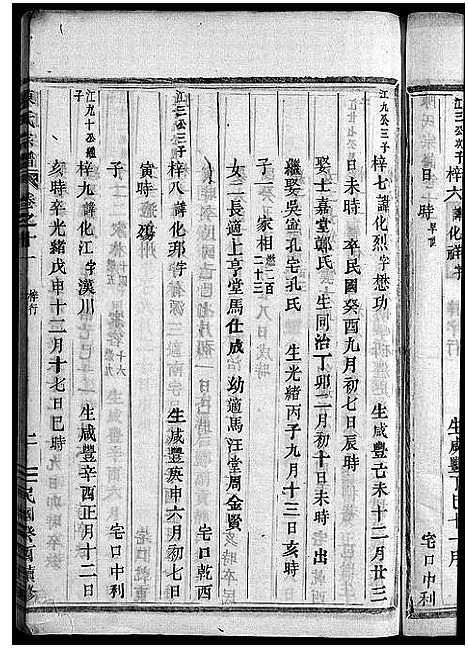 江三公次子梓六諱化祥字 生咸豐丁巳十一月
日 時 早世 宅口中利
江九公三子梓七諱化烈字懋功 生咸豐己未十二月廿三
日未時 卒民國癸酉九月初七日辰時
娶士嘉堂鄭氏 生同治丁卯二月初十日未時 出
繼娶吳盜孔宅孔氏 生光緒丙子九月十三日亥時
子一 家相 繼二百二十三
女二長適上亨堂馬仕成 幼適馬汪堂周金賢
宅口乾西
江三公三子梓八諱化珋字 生咸豐庚申六月初七日
寅時 殤
子 宅口中利
江九十公繼子梓九諱化江字漢川 生咸豐辛酉正月十二日
亥時卒光緒戊申十二月十七日巳時
陳氏宗譜 卷之十一 梓行 二 民國癸酉續修